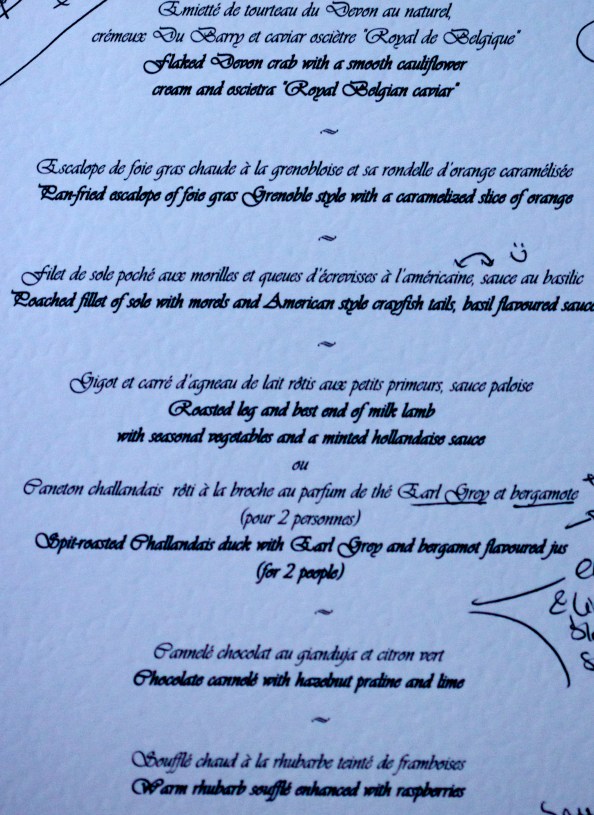 Emietté de tourteau du Devon au naturel,
crémeux Du Barry et caviar osciètre "Royal de Belgique"
Flaked Devon crab with a smooth cauliflower
cream and oscietra "Royal Belgian caviar"
~
Escalope de foie gras chaude à la grenobloise et sa rondelle d'orange caramélisée
Pan-fried escalope of foie gras Grenoble style with a caramelized slice of orange
~
Filet de sole poché aux morilles et queues d'écrevisses à l'américaine, sauce au basilic
Poached fillet of sole with morels and American style crayfish tails, basil flavoured sauce
~
Gigot et carré d'agneau de lait rôtis aux petits primeurs, sauce paloise
Roasted leg and best end of milk lamb
with seasonal vegetables and a minted hollandaise sauce
ou
Caneton challandais rôti à la broche au parfum de thé Earl Grey et bergamote
(pour 2 personnes)
Spit-roasted Challandais duck with Earl Grey and bergamot flavoured jus
(for 2 people)
~
Cannelé chocolat au gianduja et citron vert
Chocolate cannelé with hazelnut praline and lime
~
Soufflé chaud à la rhubarbe teinté de framboises
Warm rhubarb soufflé enhanced with raspberries